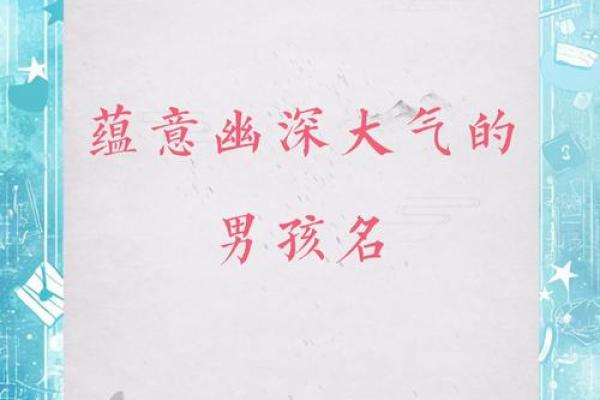 蕴意幽深大气的
男孩名